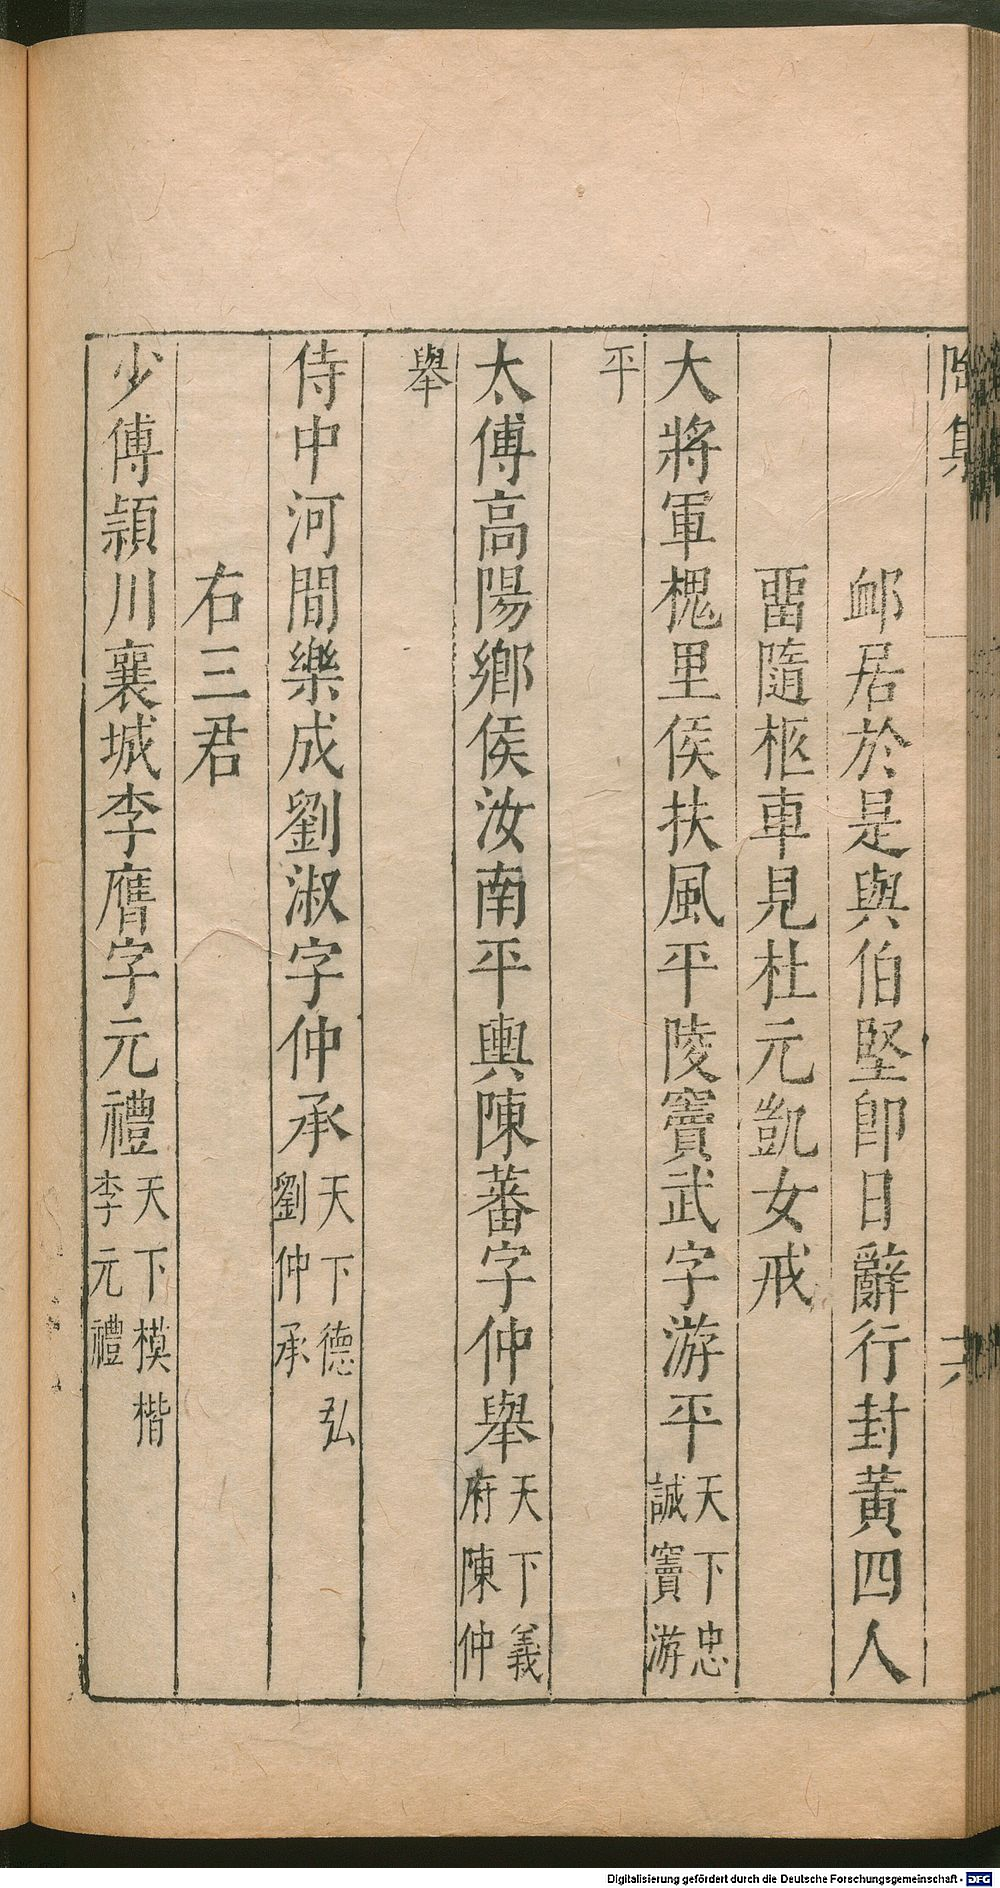 卹居於是與伯堅卽日辭行封黃四人
畱隨柩車見杜元凱女戒
大將軍槐里侯扶風平陵竇武字游平天下忠誠竇游
平
太傅高陽鄉侯汝南平輿陳蕃字仲舉天下義府陳仲
舉
侍中河間樂成劉淑字仲承天下德弘劉仲承
右三君
少傅潁川襄城李膺字元禮天下模楷李元禮
Digitalisierung gefördert durch die Deutsche Forschungsgemeinschaft - DFG